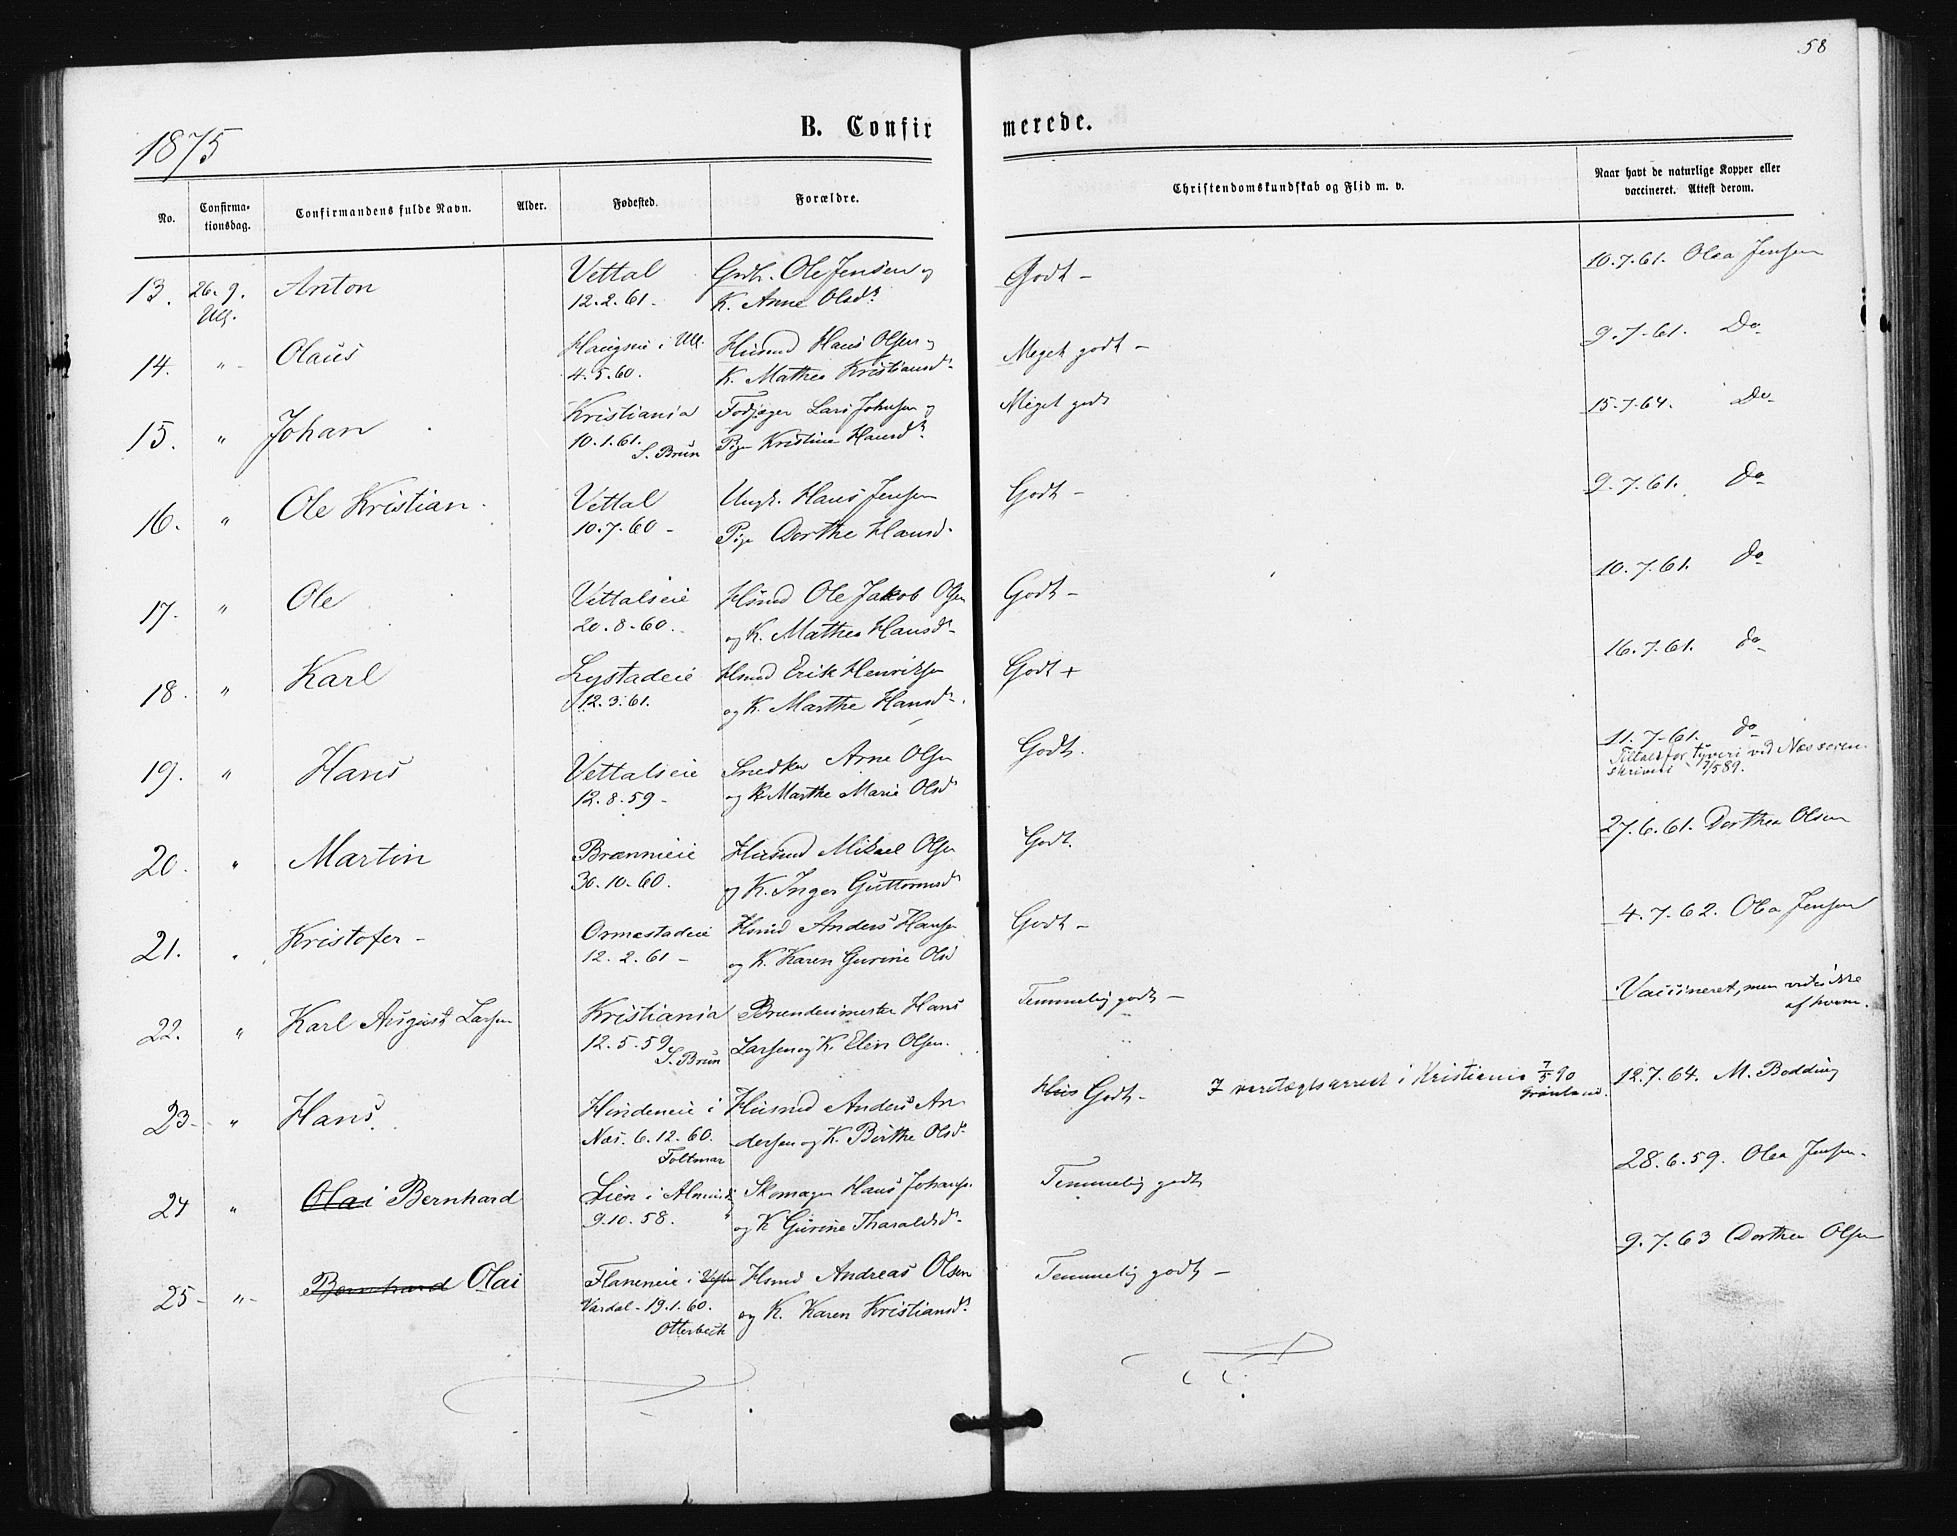 58
1875
B. Confirmerede.
No. Confirmationsdag. Confirmandens fulde Navn. Alder. Fødested. Forældre. Christendomskundskab og Flid m. v. Naar havt de naturlige Kopper eller vaccineret. Attest derom.
13. 26.9. Anton Vettal Grdb. Ole Jensen og Godt – 10.7.61. Olea Jensen
Ull. 12.2.61. K. Anne Olsdr
14. " Olaus Haugseie i Ull. Husmd Hans Olsen og Meget godt – 9.7.61. Do
4.5.60. K. Mathea Kristiansdr
15. " Johan Kristiania Fodjæger Lars Johnsen og Meget godt 15.7.64. Do
10.1.61. S. Brun Pige Kristine Hansdr
16. " Ole Kristian Vettal Ungk. Hans Jensen Godt – 9.7.61. do
10.7.60 – Pige Dorthe Hansd.
17. " Ole Vettalseie Hsmd Ole Jakob Olsen Godt – 10.7.61. do
20.8.60. og K. Mathea Hansdr
18. " Karl Lystadeie Hsmd Erik Henriksen Godt + 16.7.61. do
12.3.61. og K. Marthe Hansdr
19. " Hans Vettalseie Snedker Arne Olsen Godt. 11.7.61. do
12.8.59 – og K. Marthe Marie Olsdr Tiltalt for tyveri ved Nes soren-
skriveri 7/5 89.
20. " Martin Brænneie Husmd Mikael Olsen Godt. 27.6.61. Dorthea Olsen
30.10.60. og K. Inger Guttormsdr
21. " Kristofer – Ormestadeie Hsmd Anders Hansen Godt – 4.7.62. Olea Jensen
12.2.61 – og K. Karen Gurine Olsd
22. " Karl August Larsen Kristiania Brænderimester Hans Temmelig godt – Vaccineret, men vides ikke
12.5.59. S. Brun Larsen og K. Elen Olsen. af hvem.
23 – " Hans. Hindeneie i Husmd Anders An- Godt – I varetægtsarrest i Kristiania 7/5 90 12.7.64. M. Bodding
Grønland.
Næs. 6.12.60. dersen og K. Birthe Olsdr
Foltmar
24 " Olai Bernhard Lien i Skomager Hans Johansen Temmelig godt 28.6.59. Olea Jensen.
9.10.58. " og K Gurine Tharaldsdr
25 – " – Bernhard Olai Flaneneie i Hsmd Andreas Olsen Temmelig godt – 9.7.63 Dorthea Olsen
Vardal – 19.1.60. og K. Karen Kristiansdr
Otterbech